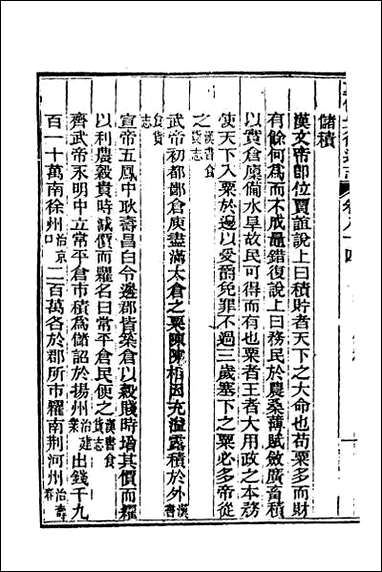 儲積
漢文帝卽位賈誼說上曰積貯者天下之大命也苟粟多而財
有餘何爲而不成鼂錯復說上曰務民於農桑薄賦斂廣畜積
以實倉廩備水旱故民可得而有也粟者王者大用政之本務
使天下入粟於邊以受爵免罪不過三歲塞下之粟必多帝從
之漢書食貨志
武帝初都鄙倉庾盡滿太倉之粟陳陳相因充溢露積於外漢書食貨志
宣帝五鳳中耿壽昌白令邊郡皆築倉以穀賤時增其價而糴
以利農穀貴時減價而糶名曰常平倉民便之漢書食貨志
齊武帝永明中立常平倉市積爲儲詔於揚州治建業出錢千九
百一十萬南徐州治京口二百萬各於郡所市糴南荆河州治壽春